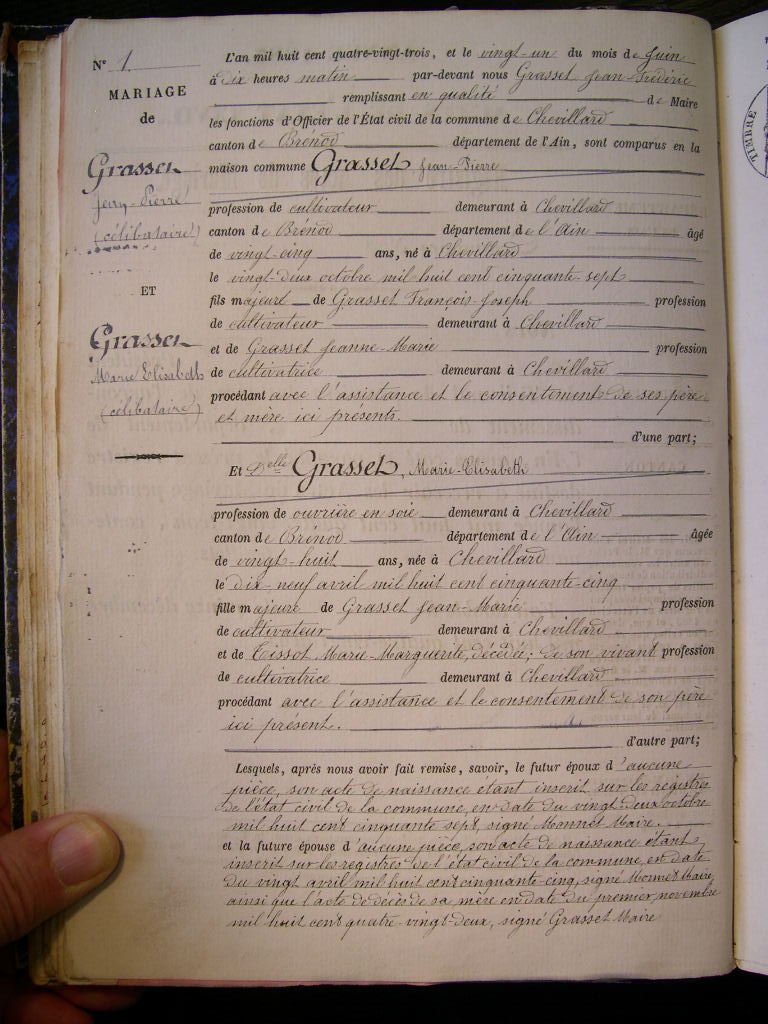 N° 1.
MARIAGE
de
Grasset
Jean-Pierre
(célibataire)
ET
Grasset
Marie Elisabeth
(célibataire)
L'an mil huit cent quatre-vingt-trois, et le vingt-un du mois de Juin
à dix heures matin par-devant nous Grasset Jean-Frédéric
remplissant en qualité de Maire
les fonctions d'Officier de l'État civil de la commune de Chevillard
canton de Brénod département de l'Ain, sont comparus en la
maison commune Grasset Jean-Pierre
profession de cultivateur demeurant à Chevillard
canton de Brénod département de l'Ain âgé
de vingt-cinq ans, né à Chevillard
le vingt-deux octobre mil huit cent cinquante-sept
fils majeur de Grasset François-Joseph profession
de cultivateur demeurant à Chevillard
et de Grasset Jeanne-Marie profession
de cultivatrice demeurant à Chevillard
procédant avec l'assistance et le consentement de ses père
et mère ici présents.
d'une part;
Et Delle Grasset, Marie-Elisabeth
profession de ouvrière en soie demeurant à Chevillard
canton de Brénod département de l'Ain âgée
de vingt-huit ans, née à Chevillard
le dix-neuf avril mil huit cent cinquante-cinq
fille majeure de Grasset Jean-Marie profession
de cultivateur demeurant à Chevillard
et de Tissot Marie-Marguerite, décédée; de son vivant profession
de cultivatrice demeurant à Chevillard
procédant avec l'assistance et le consentement de son père
ici présent.
d'autre part;
Lesquels, après nous avoir fait remise, savoir, le futur époux d'aucune
pièce, son acte de naissance étant inscrit sur les registres
de l'état civil de la commune, en date du vingt-deux octobre
mil huit cent cinquante sept, signé Monnet Maire.
et la future épouse d'aucune pièce, son acte de naissance étant
inscrit sur les registres de l'état civil de la commune, en date
du vingt avril mil huit cent cinquante-cinq, signé Monnet Maire
ainsi que l'acte de décès de sa mère en date du premier novembre
mil huit cent quatre-vingt-deux, signé Grasset Maire
TIMBRE